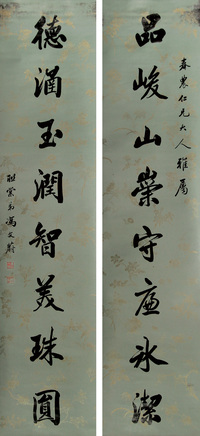 春農仁兄大人雅屬
品峻山嵩守廉冰潔
德涵玉潤智美珠圓
馮文蔚